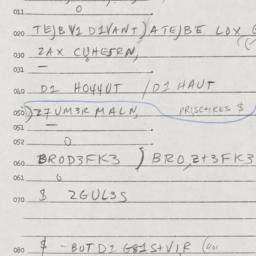 011
0
020 TEJBV1 D1VANT) ATEJBE LDX (
ZAX CUHEFRN,
030
031
040 D1 HO44UT / D1 HAUT
050) Z7UM3R MALN, PRISCAIRES $
051
052 0
060 BROD3FK3 ) BROZ+3FK3
061 0
070 $ 2GUL3S
080 $ - BOT D1